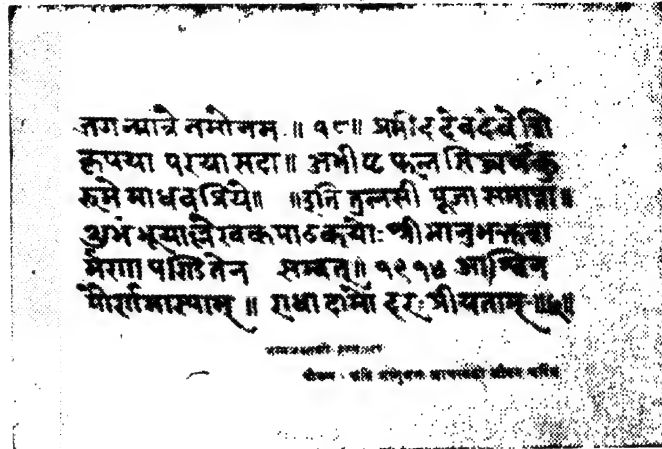 जगन्मात्रे नमोनम ॥ १८॥ प्रसीद देवदेवेशि
कृपया परया सदा॥ अभीष्ट फल सिद्ध्यर्थं कु
रुमे माधवप्रिये॥ ॥इति तुलसी पूजा समाप्ता॥
शुभं भूयाल्लेखकपाठकयोः श्रीभानुभक्तश
र्मणा पण्डितेन सम्बत्॥ १९१४ आश्विन
पौर्णमास्याम् ॥ राधा दामोदरः प्रीयताम् ॥